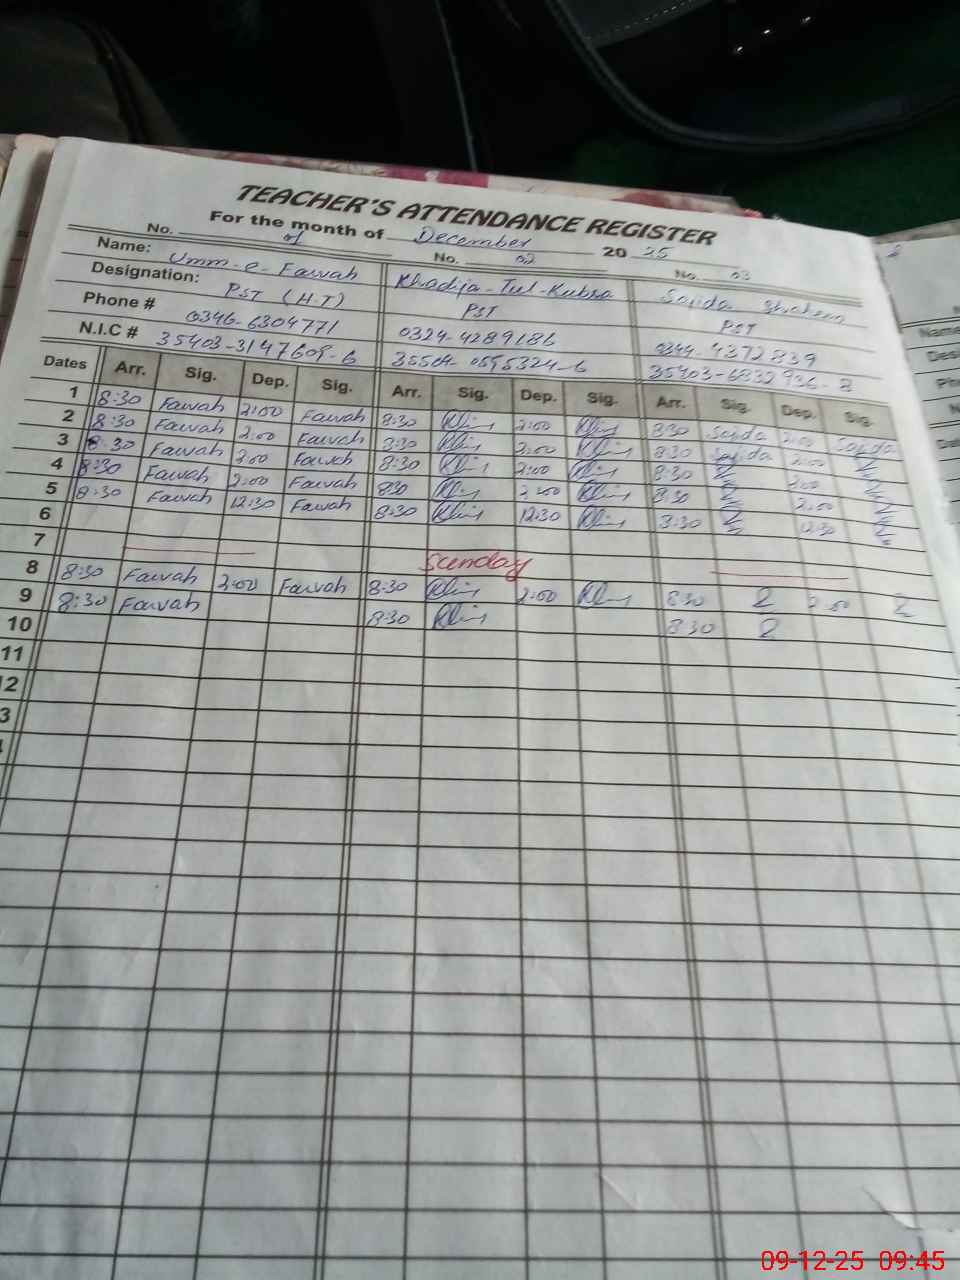 TEACHER'S ATTENDANCE REGISTER
For the month of December 2025
No. 01 No. 02 No. 03
Name: Umm-e-Farwah Khadija-Tul-Kubra Sajida Shaheen
Designation: PST (H.T) PST PST
Phone # 0346-6304771 0324-4289186 0344-4372839
N.I.C # 35403-3147609-6 35504-0595324-6 35403-6832936-8
Dates Arr. Sig. Dep. Sig. Arr. Sig. Dep. Sig. Arr. Sig. Dep. Sig.
1 8:30 Farwah 2:00 Farwah 8:30 2:00 8:30 Sajida 2:00 Sajida
2 8:30 Farwah 2:00 Farwah 8:30 2:00 8:30 Sajida 2:00
3 8:30 Farwah 2:00 Farwah 8:30 2:00 8:30 2:00
4 8:30 Farwah 2:00 Farwah 830 2:00 8:30 2:00
5 8:30 Farwah 12:30 Farwah 8:30 12:30 8:30 12:30
6
7 Sunday
8 8:30 Farwah 2:00 Farwah 8:30 2:00 8:30 2:00
9 8:30 Farwah 8:30 8:30
10
11
12
3
2
Name
Desi
Ph
N
Dat
09-12-25 09:45